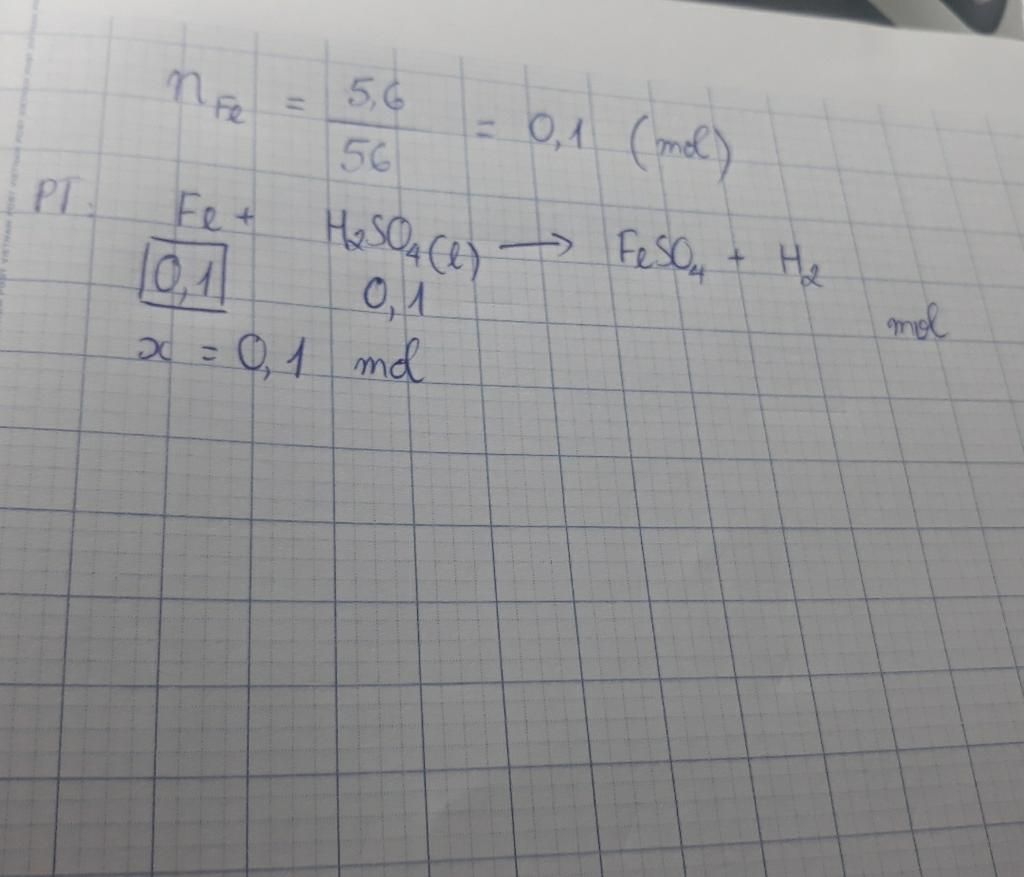 n Fe = 5,6 / 56 = 0,1 (mol)
PT. Fe + H2SO4(l) → FeSO4 + H2
0,1 0,1 mol
x = 0,1 mol